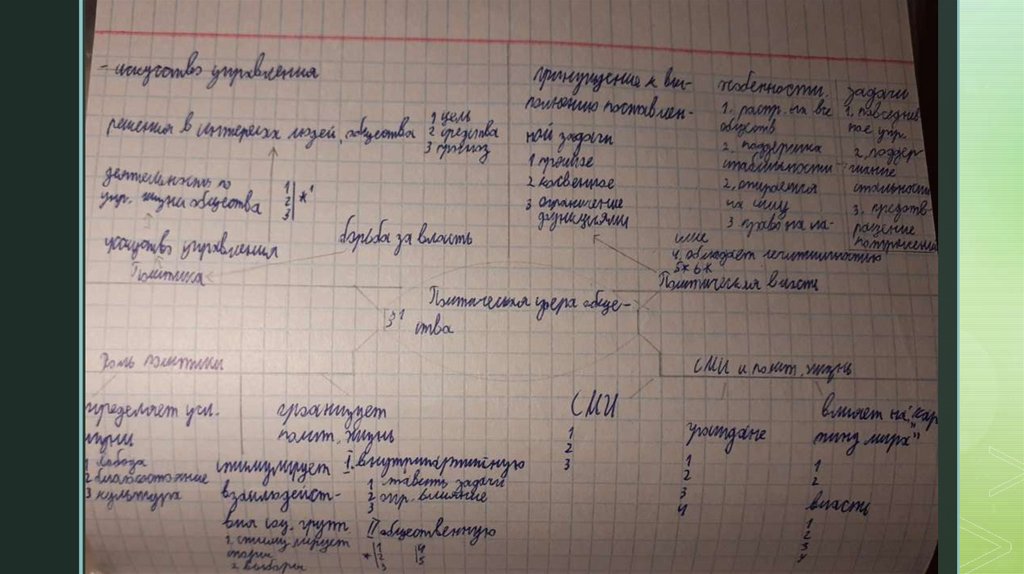 - искусство управления
решения в интересах людей, общества
1 цель
2 средства
3 прогноз
деятельность по
упр. жизни общества
1
2
3
*1
искусство управления
Политика
борьба за власть
принуждение к вы-
полнению поставлен-
ной задачи
1 прямое
2 косвенное
3 ограничение
функциями
особенности
1. распр. на все
общество
2. поддержка
стабильности
2. опирается
на силу
3 право на на-
силие
4. обладает легитимностью
5* 6*
задачи
1. повседнев
ное упр.
2. поддер
жание
стабильности
3. предотв-
ращение
Политическая власть
Политическая сфера обще-
ства
Роль политики
СМИ и полит. жизнь
определяет усл.
жизни
1 свобода
2 благосостояние
3 культура
стимулирует
взаимодейст-
вия соц. групп
1. стимулирует
2 выборы
организует
полит. жизнь
I. внутрипартийную
1 ставить задачи
2 опр. влияние
3
II общественную
* 1
2
3
4
5
СМИ
1
2
3
граждане
1
2
3
4
влияет на "кар
тину мира"
1
2
власть
1
2
3
4